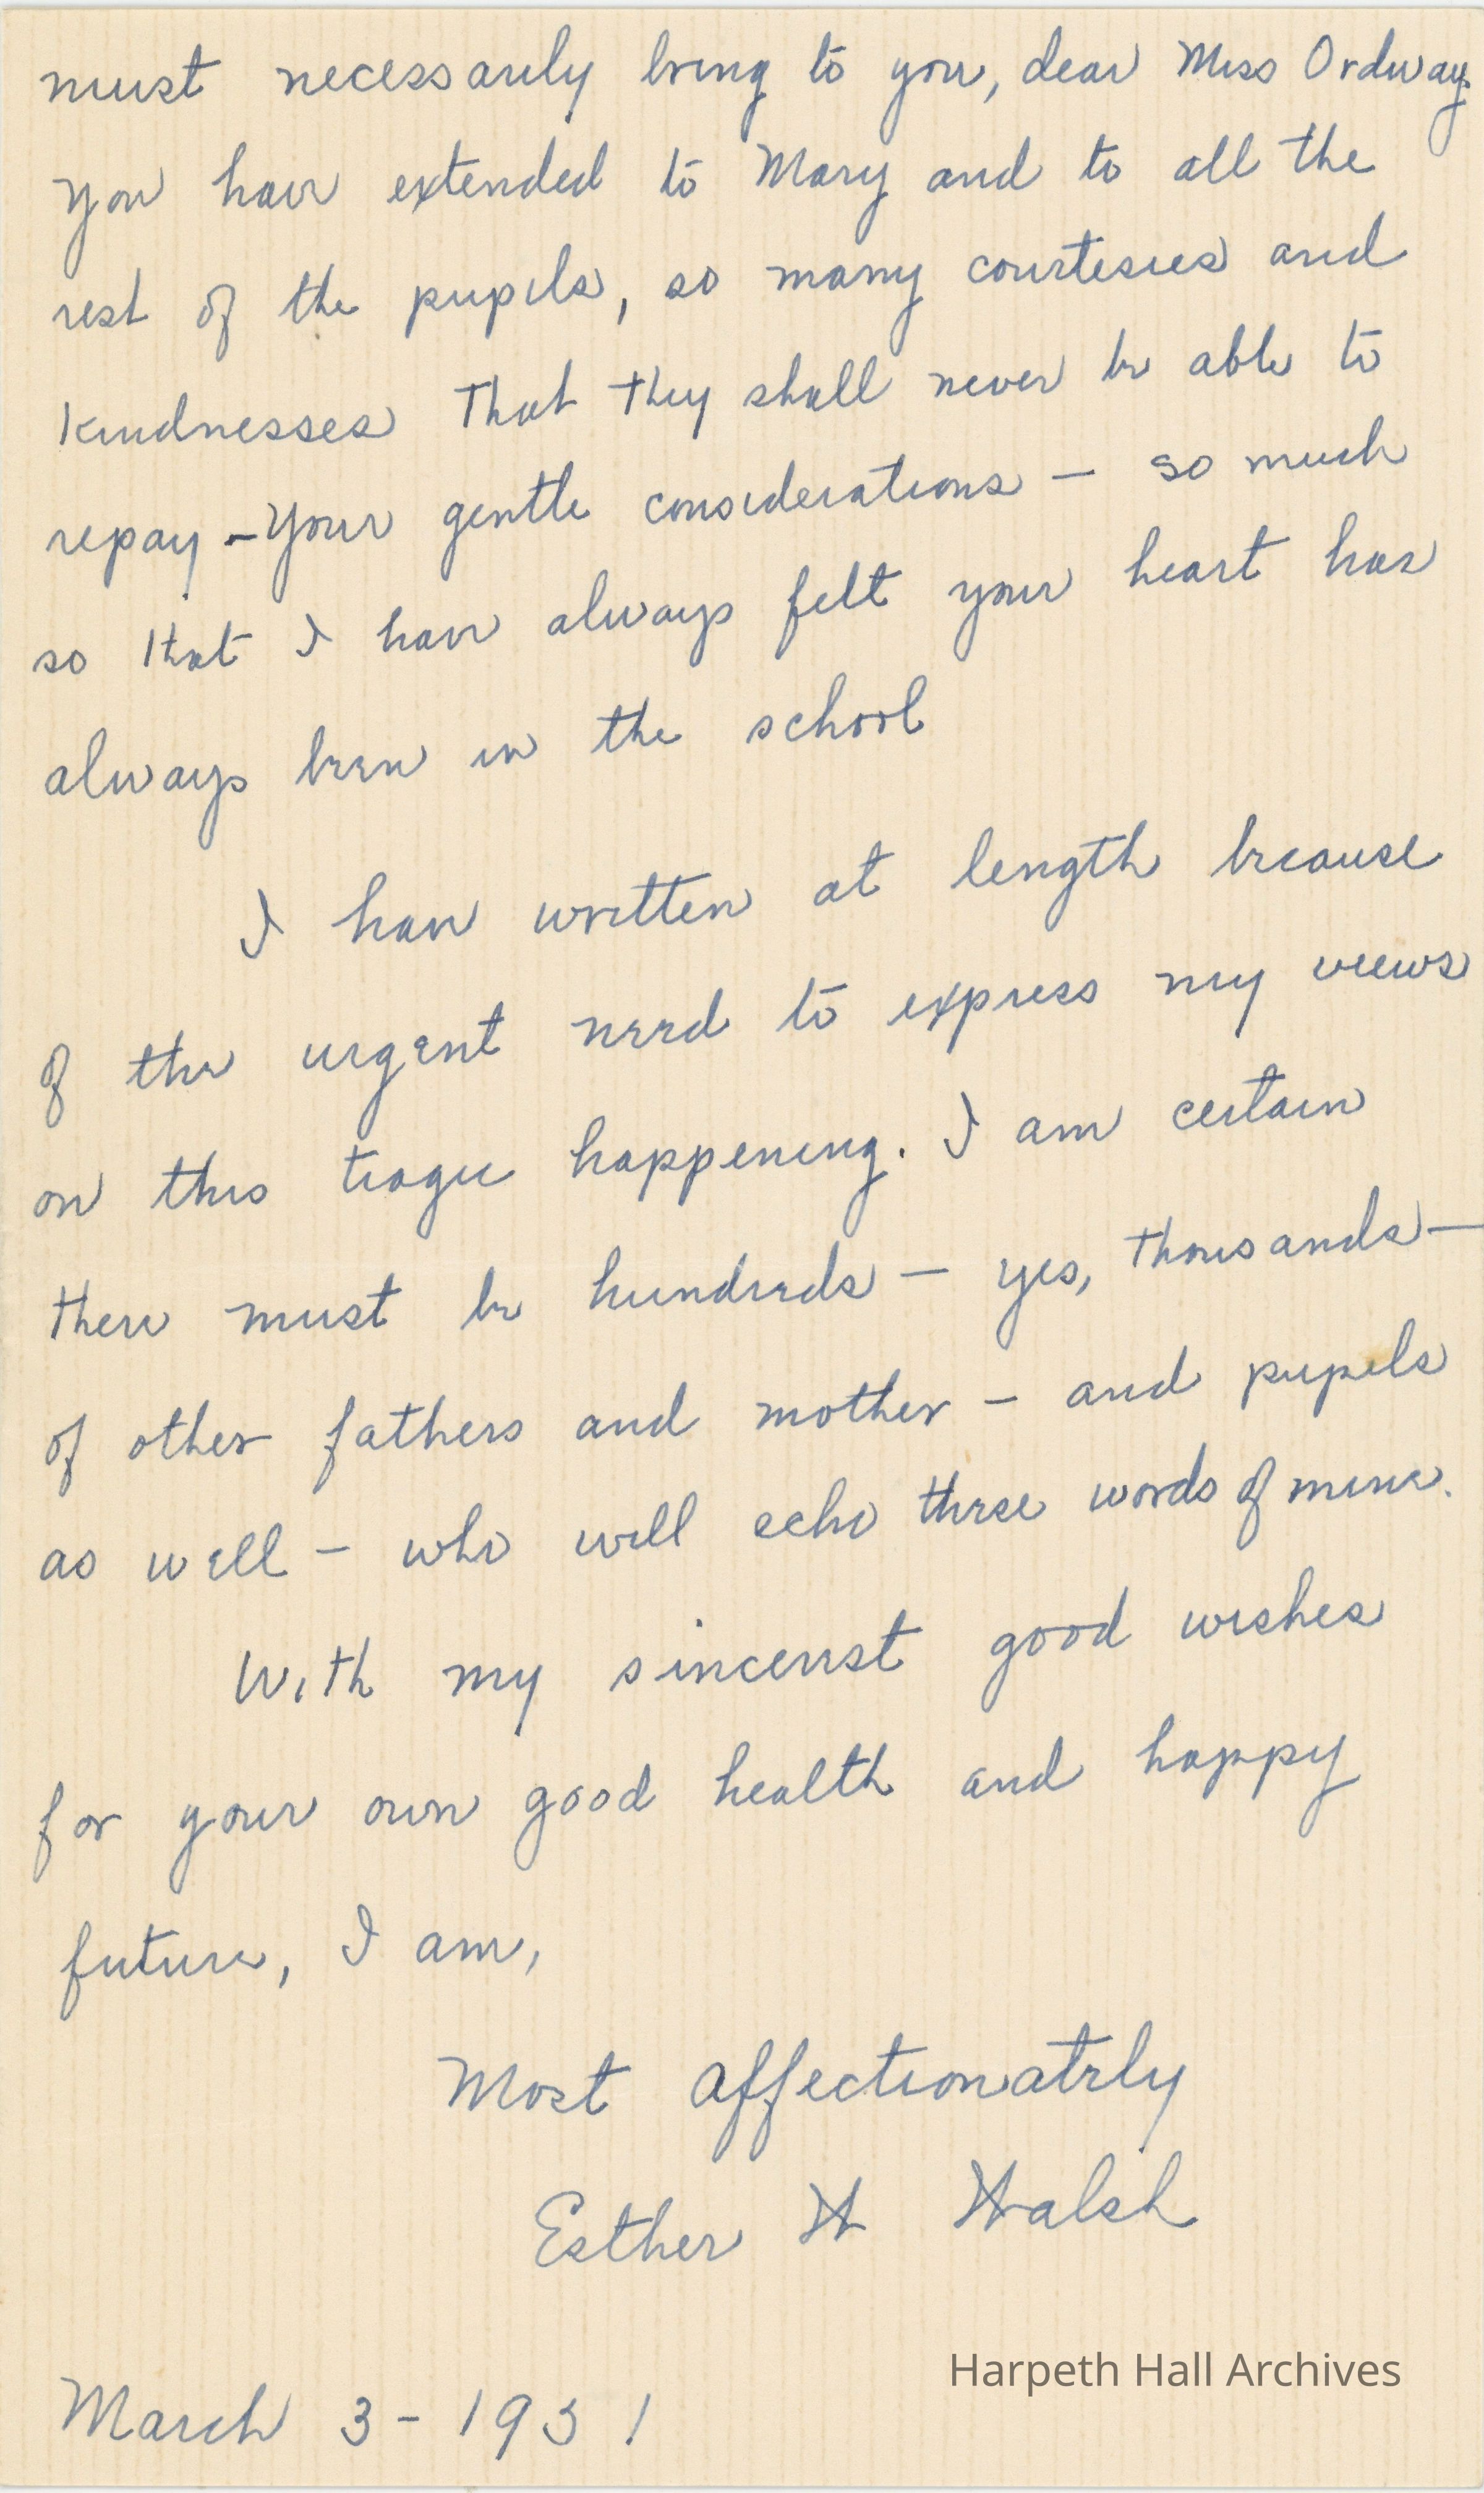 must necessarily bring to you, dear Miss Ordway.
You have extended to Mary and to all the
rest of the pupils, so many courtesies and
kindnesses that they shall never be able to
repay - Your gentle considerations - so much
so that I have always felt your heart has
always been in the school
I have written at length because
of the urgent need to express my views
on this tragic happening. I am certain
there must be hundreds - yes, thousands -
of other fathers and mother - and pupils
as well - who will echo these words of mine.
With my sincerest good wishes
for your own good health and happy
future, I am,
Most affectionately
Esther W Walsh
Harpeth Hall Archives
March 3 - 1951